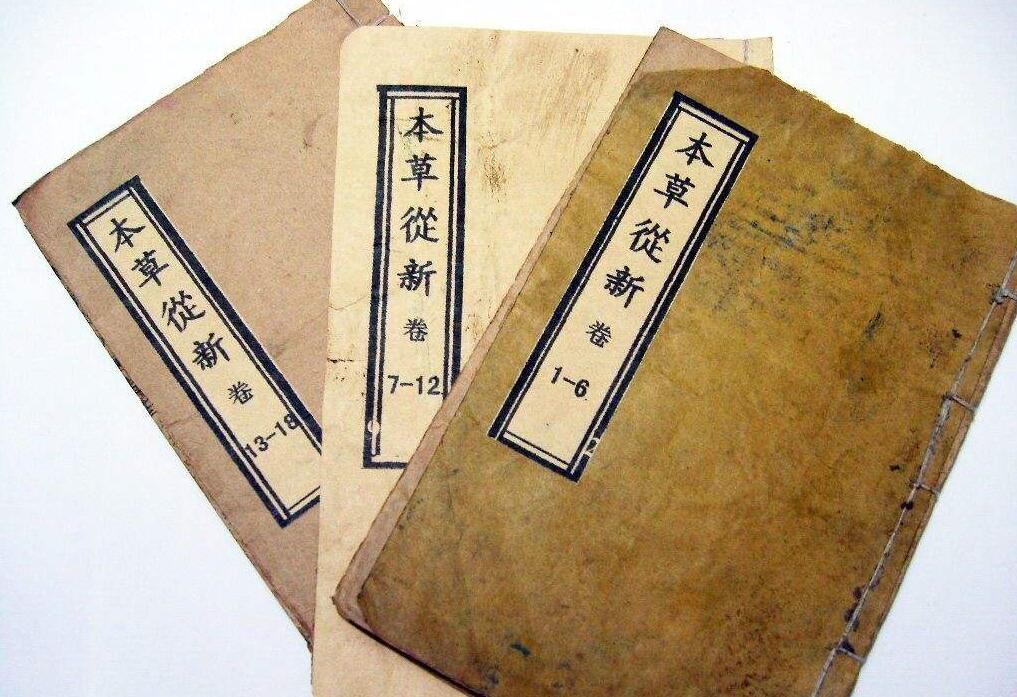 本草從新 卷 13-18
本草從新 卷 7-12
本草從新 卷 1-6